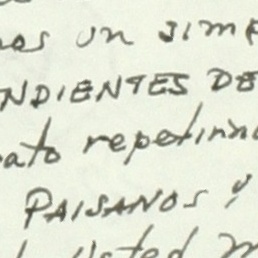 un simp
NDIENTES DE
ato repetirno
PAISANOS y
usted m